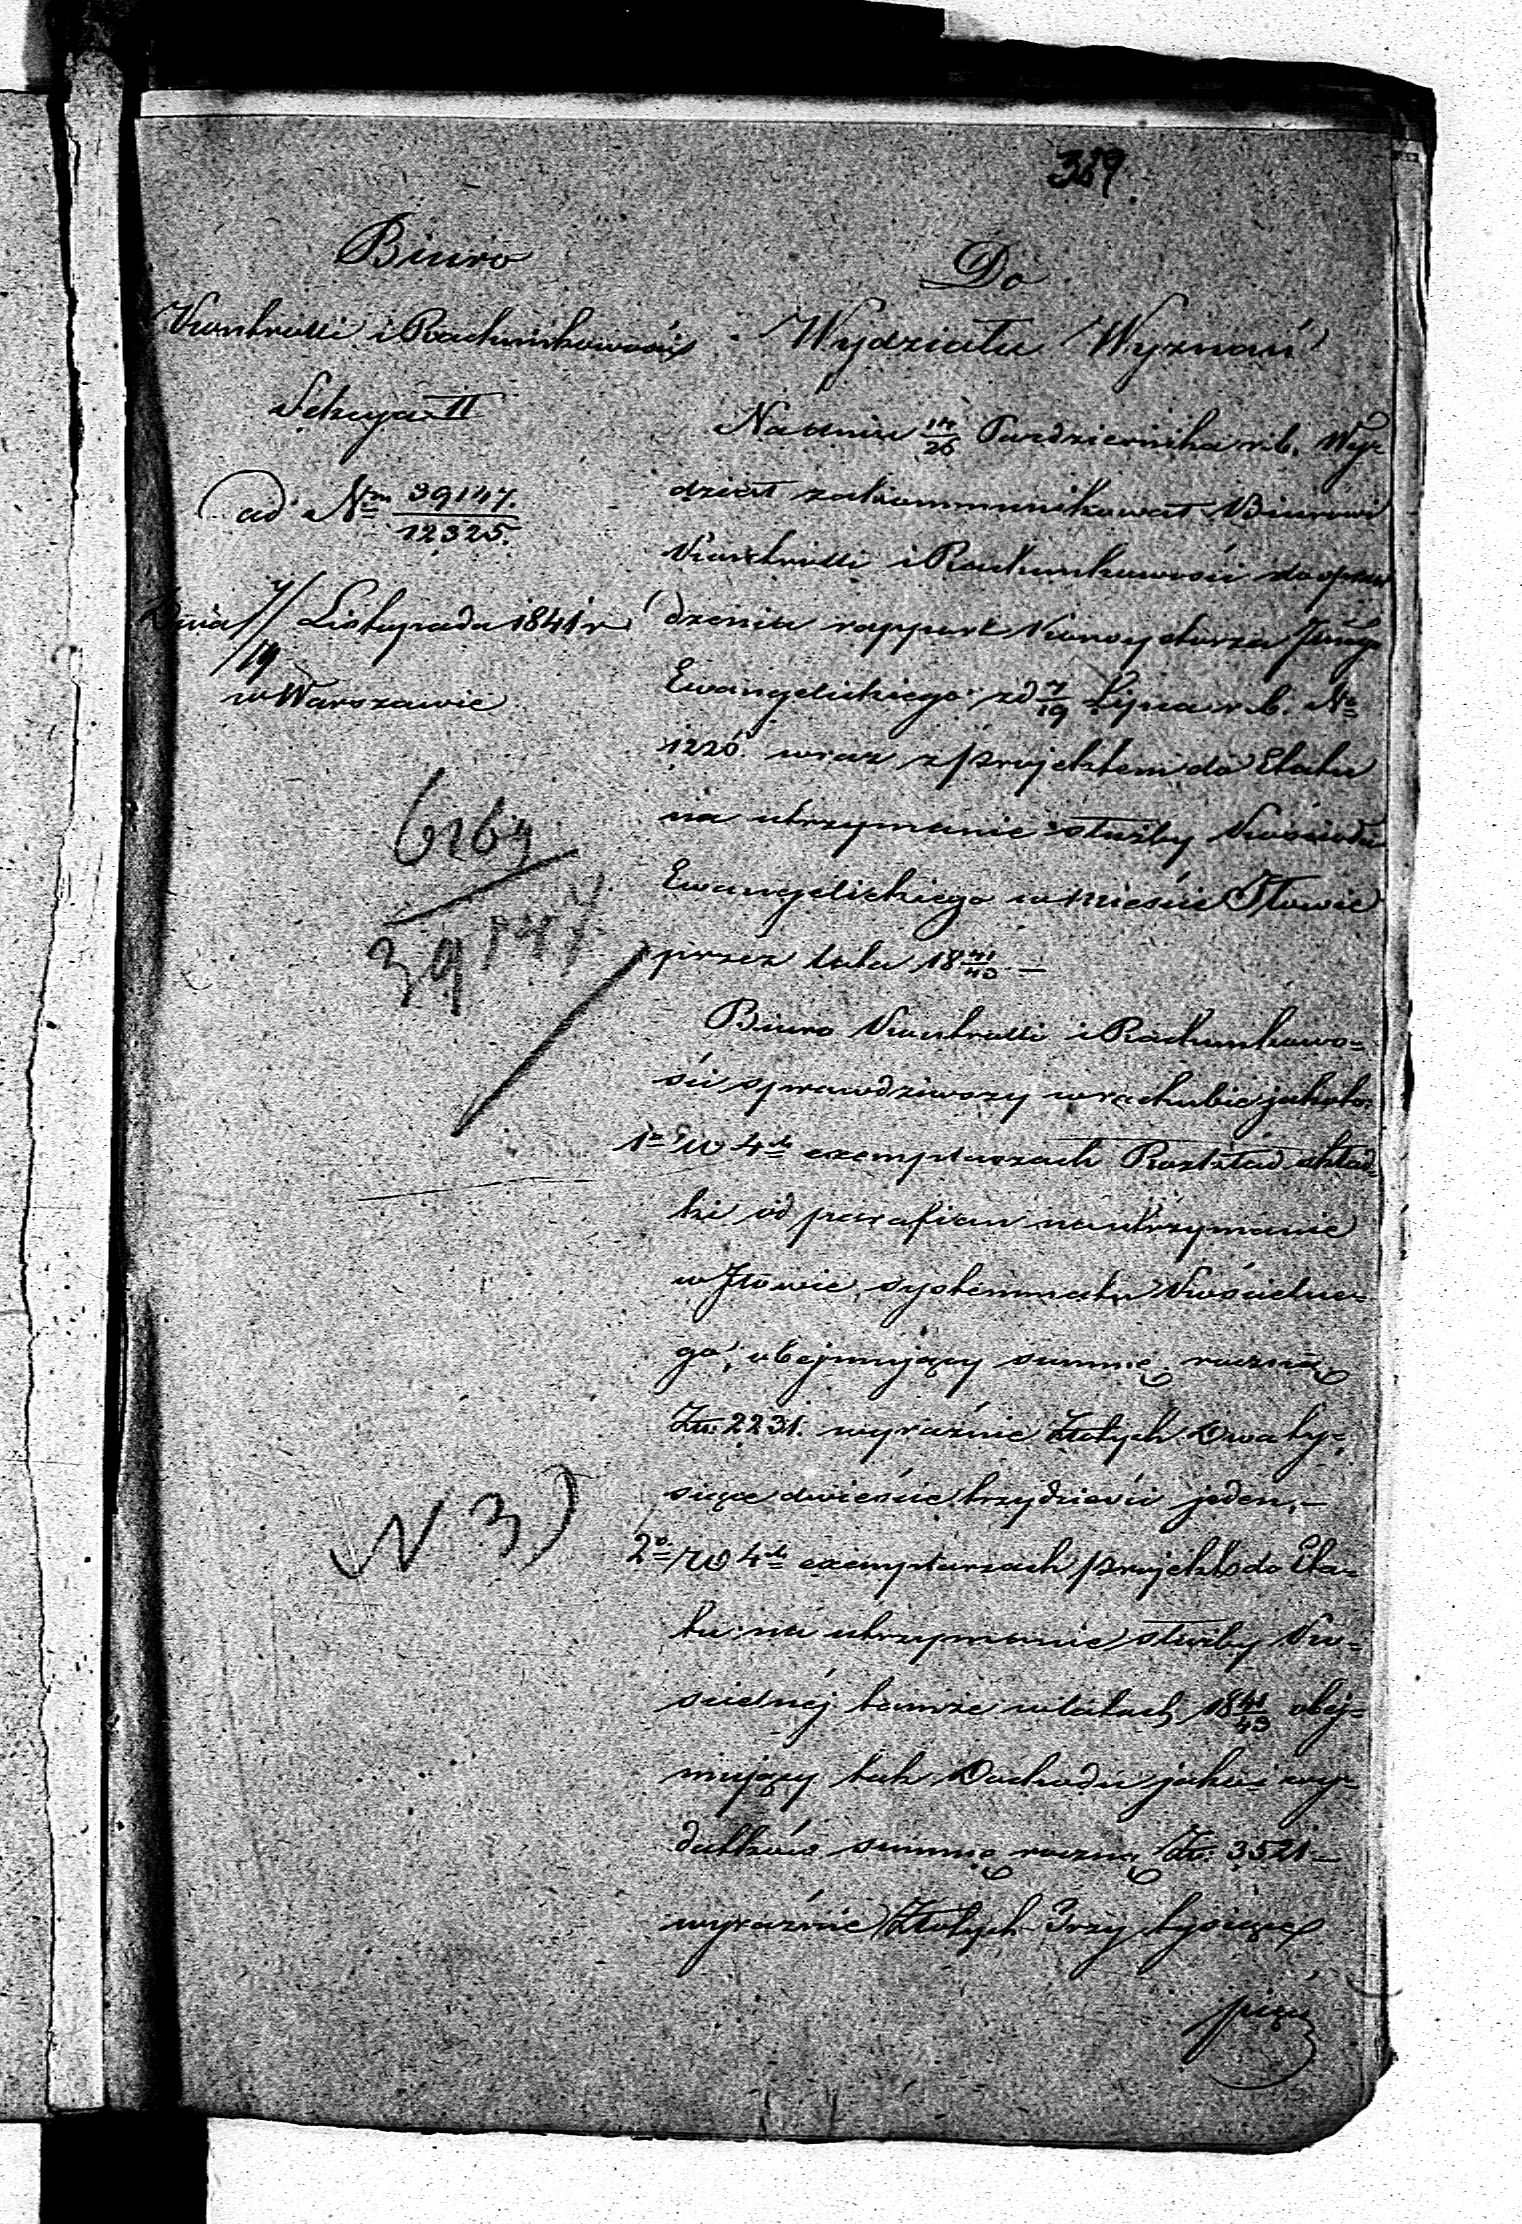 389
Biuro
Kontrolli i Rachunkowości
Sekcya II
ad Nm 39147. / 12325.
Dnia 7/19 Listopada 1841 r
w Warszawie
6164
39147
N 3)
Do
Wydziału Wyznań
Na dniu 14/26 Pazdziernika r. b. Wy-
dział zakommunikował Biurowi
Kontrolli i Rachunkowości do spraw
dzenia rapport Konsystorza Jlnego
Ewangelickiego z d 7/19 Lipca r. b. No
1220. wraz z projektem do Etatu
na utrzymanie służby Kościoła
Ewangelickiego w mieście Iłowie
przez lata 18 41/43 —
Biuro Kontrolli i Rachunkowo-
ści sprawdziwszy w rachubie jakoto:
1o W 4ch exemplarzach Rozkład skład-
ki od parafian na utrzymanie
w Iłowie systemmatu Kościelne-
go, obejmujący summę roczną
Złt. 2231. wyraźnie Złotych Dwa ty-
siące dwieście trzydzieści jeden,—
2o W 4ch exemplarzach projekt do Eta-
tu na utrzymanie służby Ko-
ścielnéj tamże w latach 18 41/43 obej-
mujący tak Dochodu jako i wy-
datków summę roczną Złt. 3521 —
wyraźnie Złotych Trzy tysiące
pięć